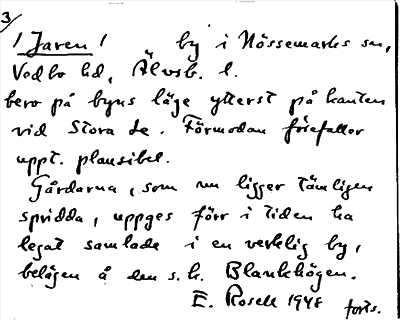 3/
/ Jaren / by i Nössemarks sn,
Vedbo hd, Älvsb. l.
bero på byns läge ytterst på kanten
vid Stora Le. Förmodan förefaller
uppt. plausibel.
Gårdarna, som nu ligger tämligen
spridda, uppges förr i tiden ha
legat samlade i en verklig by,
belägen å den s.k. Blankhögen.
E. Rosell 1948 forts.